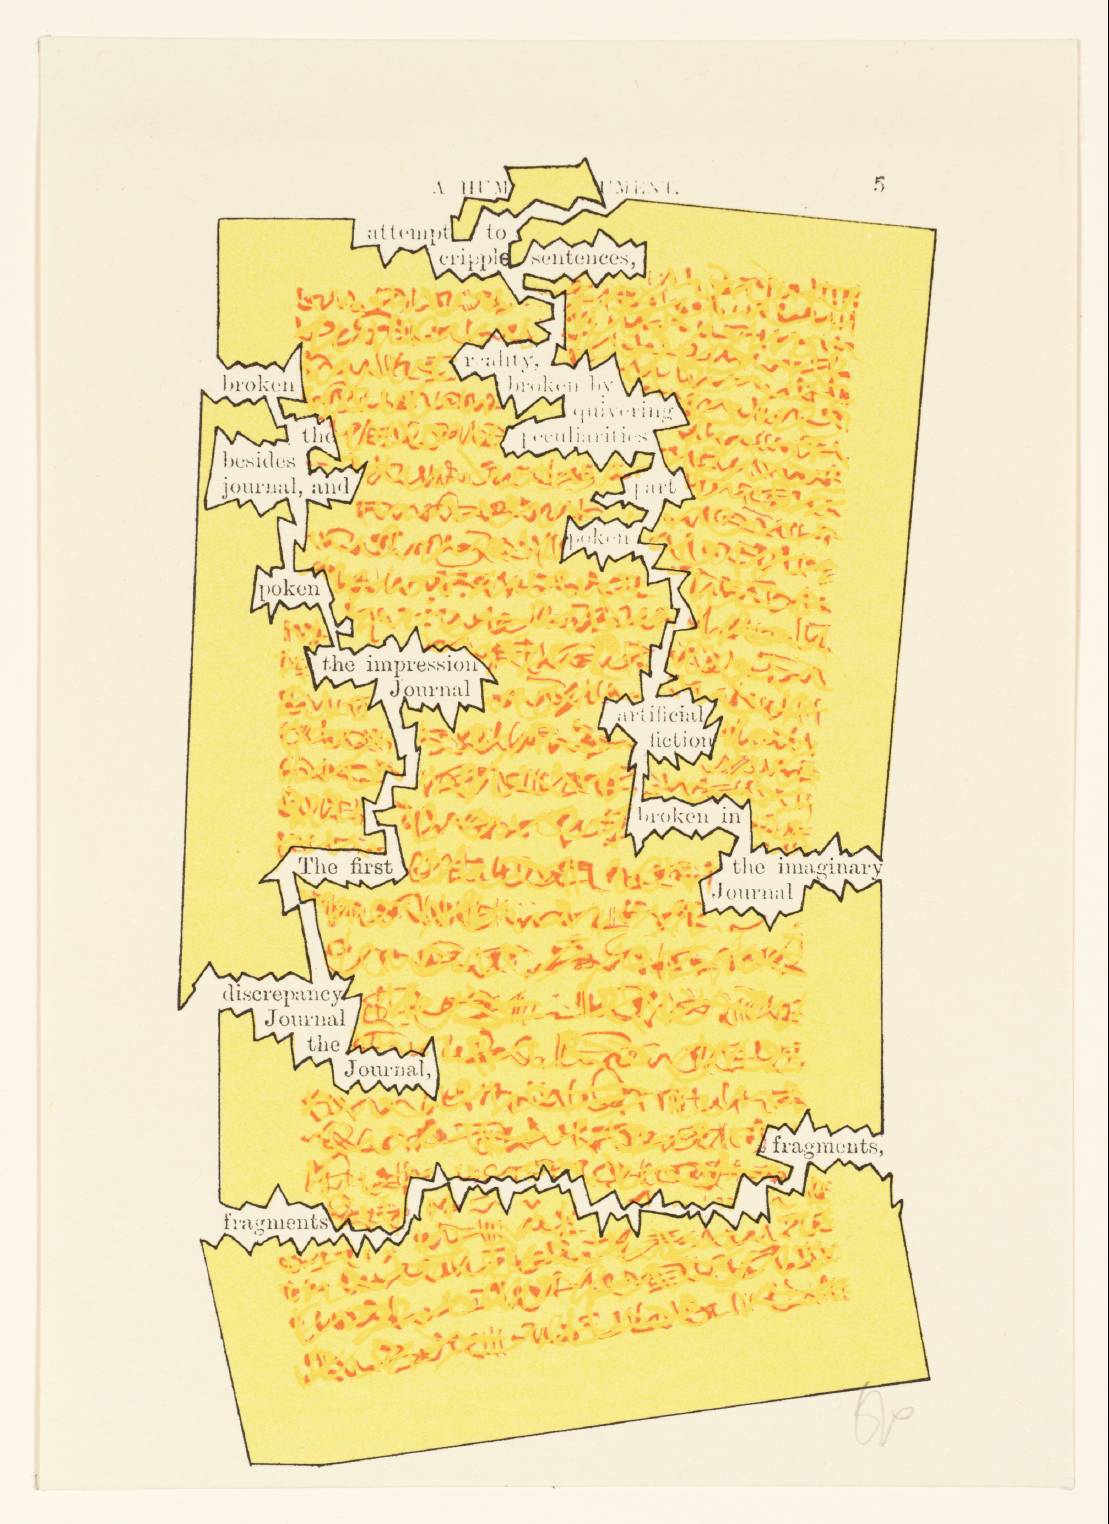 A HUM UMENT. 5
attempt to
cripple sentences,
reality,
broken broken by
quivering
the peculiarities
besides
journal, and part
poken
poken
the impression
Journal
artificial
fiction
broken in
The first the imaginary
Journal
discrepancy
Journal
the
Journal,
fragments,
fragments